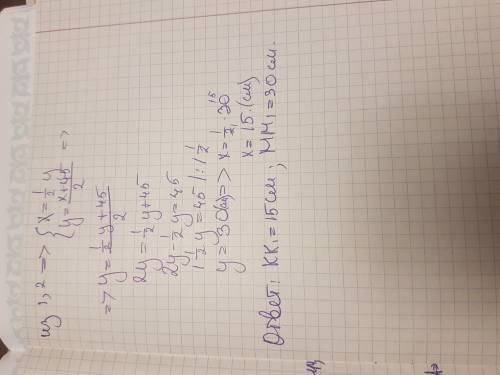 из 1,2 => { x = 1/2 y
y = (x+45)/2 =>
=> y = (1/2 y + 45)/2
2y = 1/2 y + 45
2y - 1/2 y = 45
1 1/2 y = 45 | : 1 1/2
y = 30 (см) => x = 1/2 · 30 15
x = 15 (см)
Ответ: KK₁ = 15 см; MM₁ = 30 см.